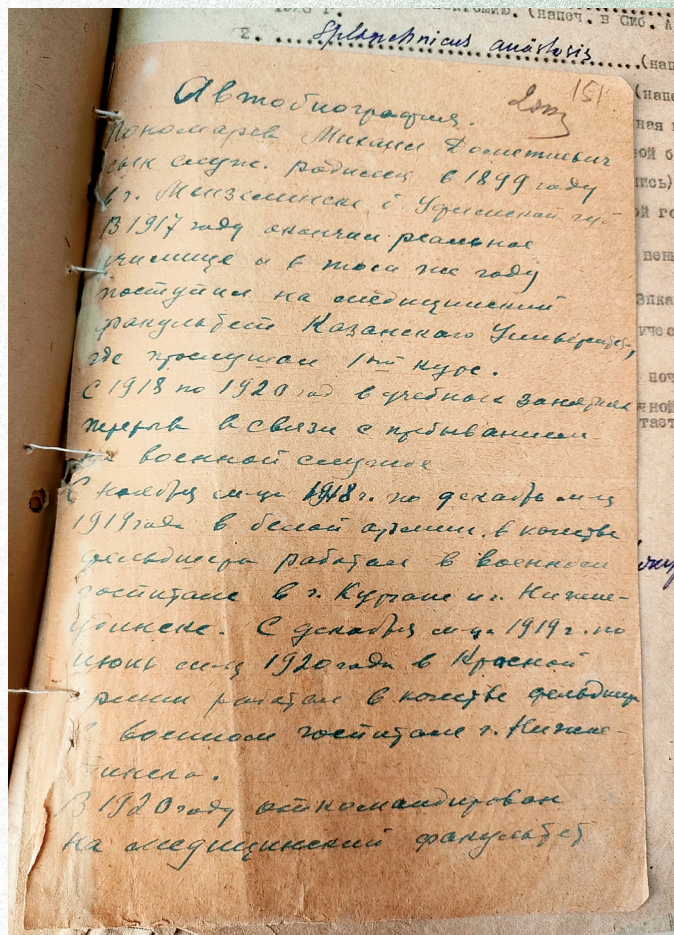 2. Splanchnicus anastosis
(нап
151
Автобиография.
Пономарев Михаил Дометиевич
сын служ. родился в 1899 году
в г. Мензелинске б. Уфимской губ
В 1917 году окончил реальное
училище и в том же году
поступил на медицинский
факультет Казанского Университета,
где прослушал 1ый курс.
С 1918 по 1920 год в учебных занятиях
перерыв в связи с пребыванием
на военной службе
С ноября м-ца 1918 г. по декабрь м-ц
1919 года в белой армии в качестве
фельдшера работал в военном
госпитале в г. Кургане и г. Нижне-
удинске. С декабря м-ца 1919 г. по
июнь м-ц 1920 года в Красной
армии работал в качестве фельдшера
в военном госпитале г. Нижне-
удинска.
В 1920 году откомандирован
на медицинский факультет